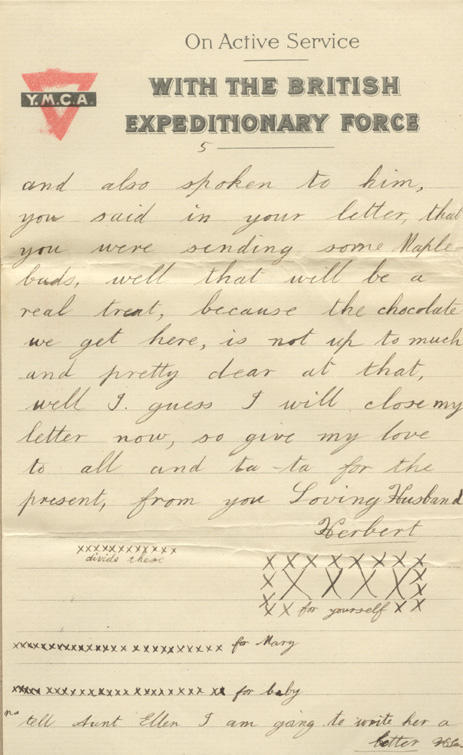 On Active Service
WITH THE BRITISH
Y.M.C.A.
EXPEDITIONARY FORCE
5
and also spoken to him,
you said in your letter, that
you were sending some Maple
buds, well that will be a
real treat, because the chocolate
we get here, is not up to much
and pretty dear at that,
well I guess I will close my
letter now, so give my love
to all and ta-ta for the
present, from you Loving Husband
Herbert
xxxxxxxxxxx
divide these
x x x x x x x
x x x x x x x
x x for yourself x x
xxxxxxxxxxxxxxxxxxxxxx for Mary
xxxxxxxxxxxxxxxxxxxxxx for baby
tell Aunt Ellen I am going to write her a
letter